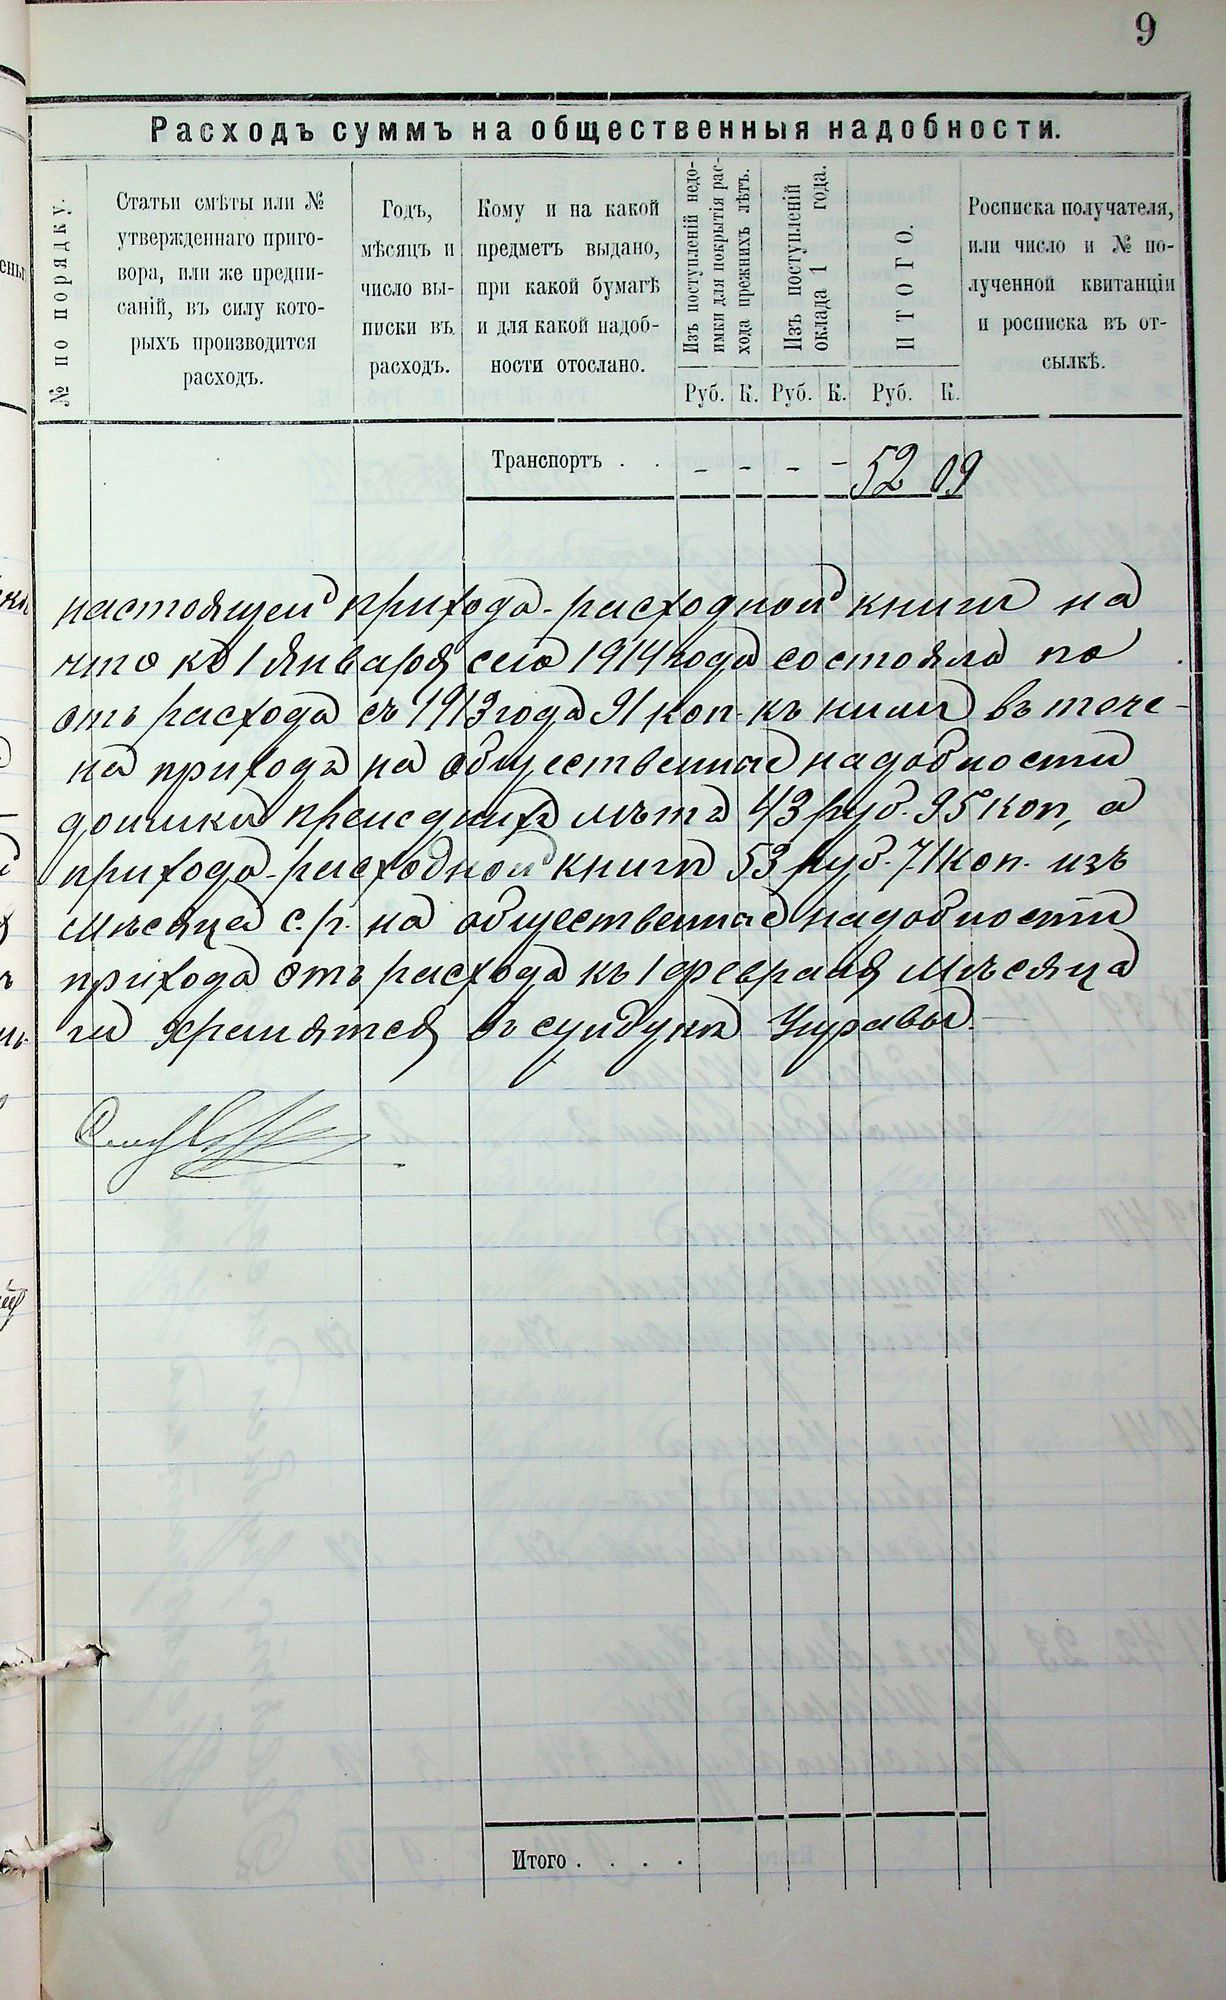 9
Расходъ суммъ на общественныя надобности.
№ по порядку.
Статьи смѣты или №
утвержденнаго приго-
вора, или же предпи-
саній, въ силу кото-
рыхъ производится
расходъ.
Годъ,
мѣсяцъ и
число вы-
писки въ
расходъ.
Кому и на какой
предметъ выдано,
при какой бумагѣ
и для какой надоб-
ности отослано.
Изъ поступленій недо-
имки для покрытія рас-
хода прежнихъ лѣтъ.
Изъ поступленій
оклада 1 года.
ИТОГО.
Росписка получателя,
или число и № по-
лученной квитанціи
и росписка въ от-
сылкѣ.
Руб. К. Руб. К. Руб. К.
Транспортъ . . - - - - 52 09
настоящей прихода-расходной книги на
что къ 1 января сего 1914 года состояло по
отъ расхода съ 1913 года 91 коп. къ нимъ въ тече-
на приходъ на общественные надобности
доимки лѣтъ 43 руб. 95 коп, а
прихода-расходной книги 53 руб. 71 коп. изъ
мѣсяца с.г. на общественные надобности
прихода отъ расхода къ 1 февраля мѣсяца
ги хранятся въ сундукѣ Управы.
Итого . . . .